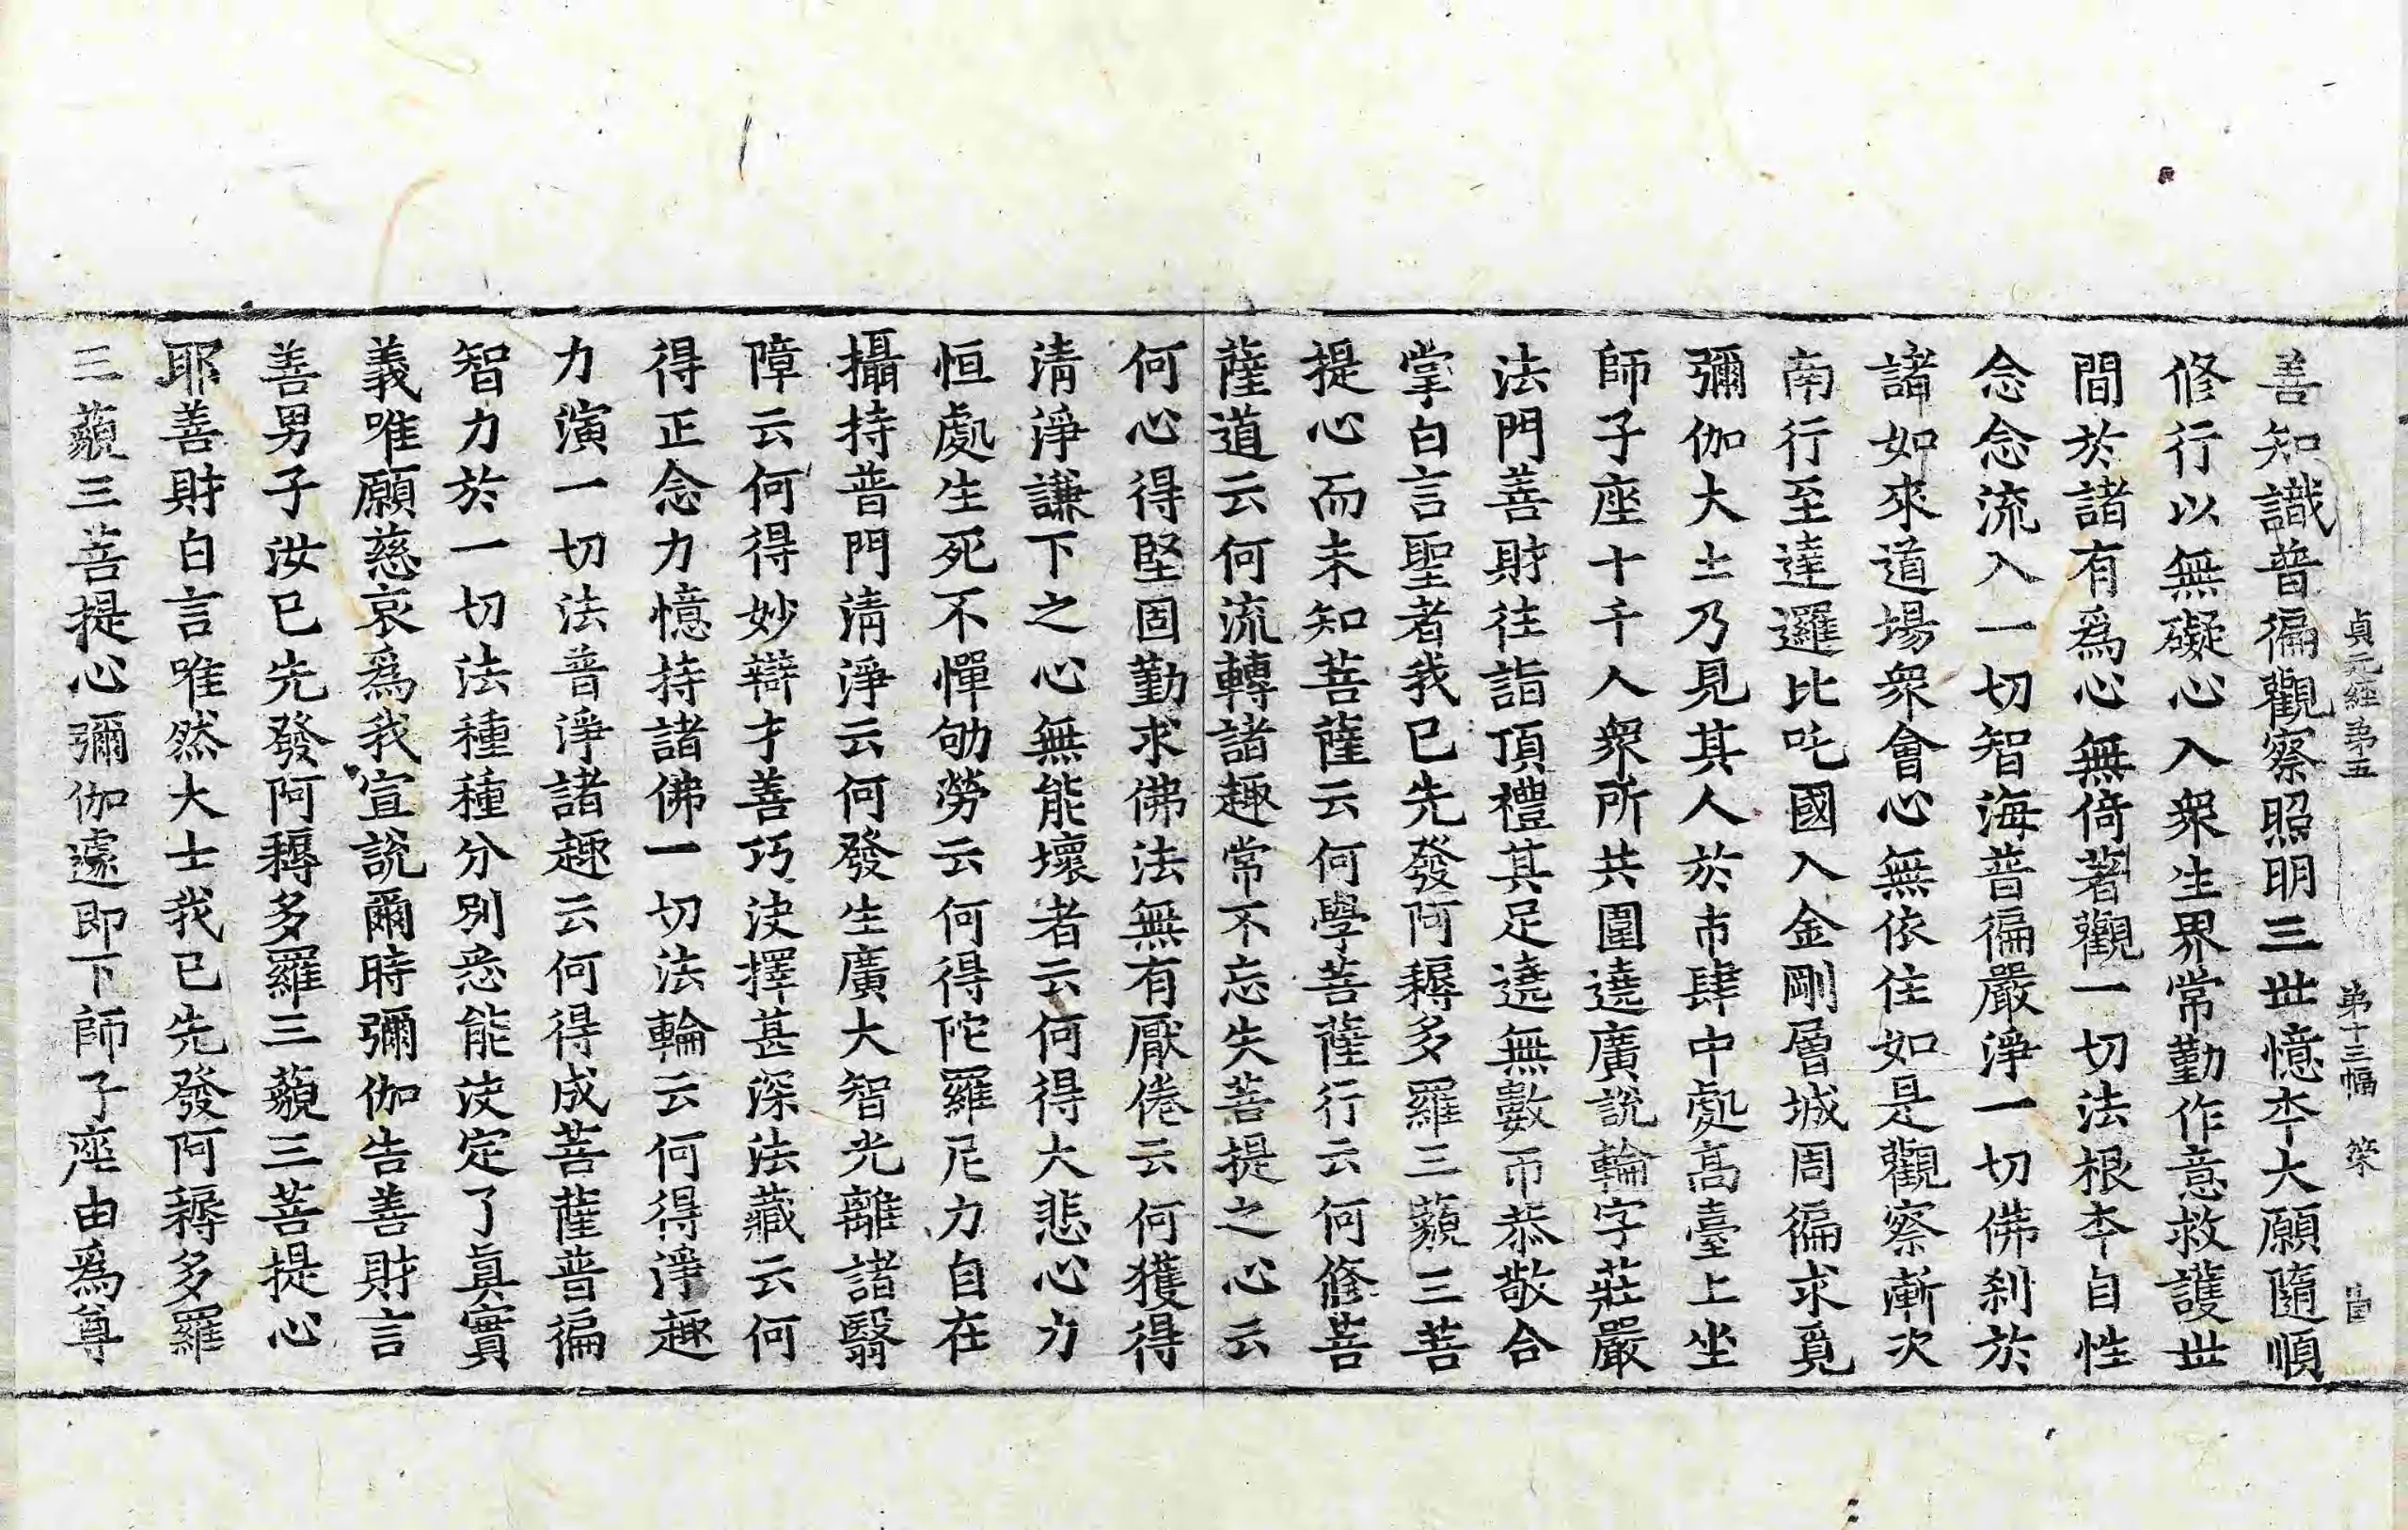 貞元經第五　第十三幅　榮
善知識普徧觀察照明三世憶本大願隨順
修行以無礙心入衆生界常勤作意救護世
間於諸有爲心無倚著觀一切法根本自性
念念流入一切智海普徧嚴淨一切佛刹於
諸如來道場衆會心無依住如是觀察漸次
南行至達邏比吒國入金剛層城周徧求覓
彌伽大士乃見其人於市肆中處高臺上坐
師子座十千人衆所共圍遶廣說輪字莊嚴
法門善財往詣頂禮其足遶無數帀恭敬合
掌白言聖者我已先發阿耨多羅三藐三菩
提心而未知菩薩云何學菩薩行云何修菩
薩道云何流轉諸趣常不忘失菩提之心云
何心得堅固勤求佛法無有厭倦云何獲得
清淨謙下之心無能壞者云何得大悲心力
恒處生死不憚劬勞云何得陀羅尼力自在
攝持普門清淨云何發生廣大智光離諸翳
障云何得妙辯才善巧決擇甚深法藏云何
得正念力憶持諸佛一切法輪云何得淨趣
力演一切法普淨諸趣云何得成菩薩普徧
智力於一切法種種分別悉能決定了眞實
義唯願慈哀爲我宣說爾時彌伽告善財言
善男子汝已先發阿耨多羅三藐三菩提心
耶善財白言唯然大士我已先發阿耨多羅
三藐三菩提心彌伽遽即下師子座由爲尊